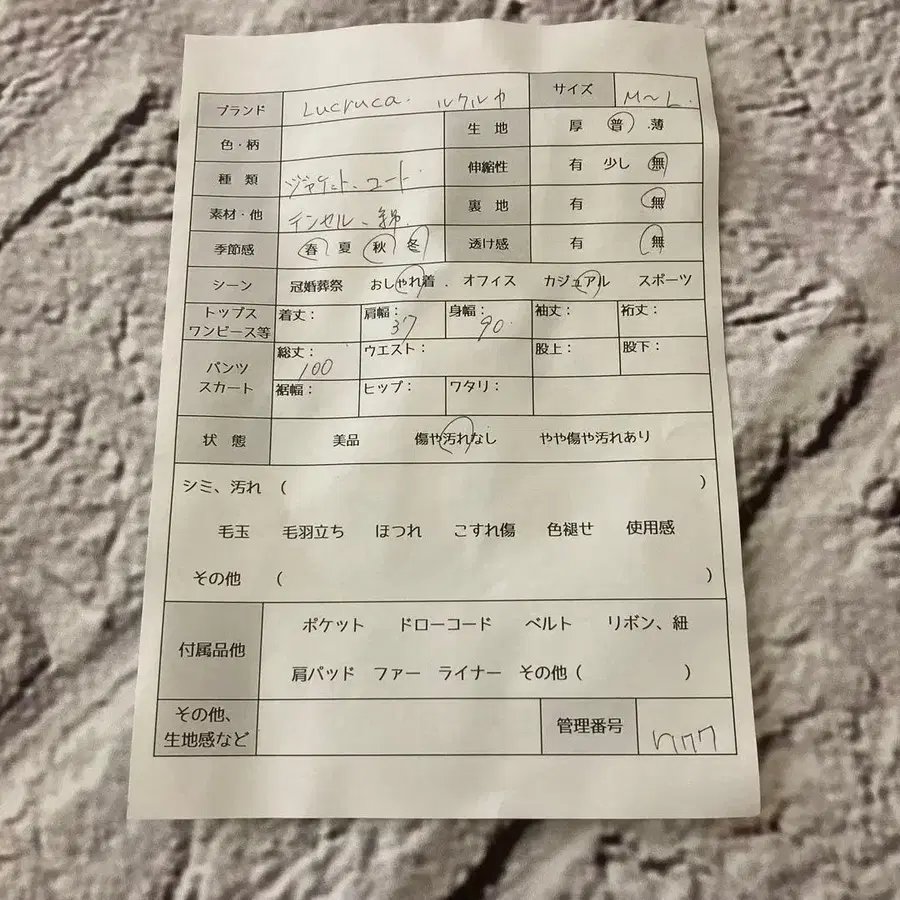 ブランド Lucruca. ルクルカ サイズ M〜L.
色・柄 生地 厚 普 薄
種類 ジャケット、コート 伸縮性 有 少し 無
素材・他 テンセル、綿 裏地 有 無
季節感 春 夏 秋 冬 透け感 有 無
シーン 冠婚葬祭 おしゃれ着 . オフィス カジュアル スポーツ
トップス ワンピース等 着丈: 肩幅: 37 身幅: 90. 袖丈: 裄丈:
パンツ スカート 総丈: 100 ウエスト: 股上: 股下:
裾幅: ヒップ: ワタリ:
状態 美品 傷や汚れなし やや傷や汚れあり
シミ、汚れ ( )
毛玉 毛羽立ち ほつれ こすれ傷 色褪せ 使用感
その他 ( )
付属品他 ポケット ドローコード ベルト リボン、紐
肩パッド ファー ライナー その他 ( )
その他、生地感など 管理番号 n777